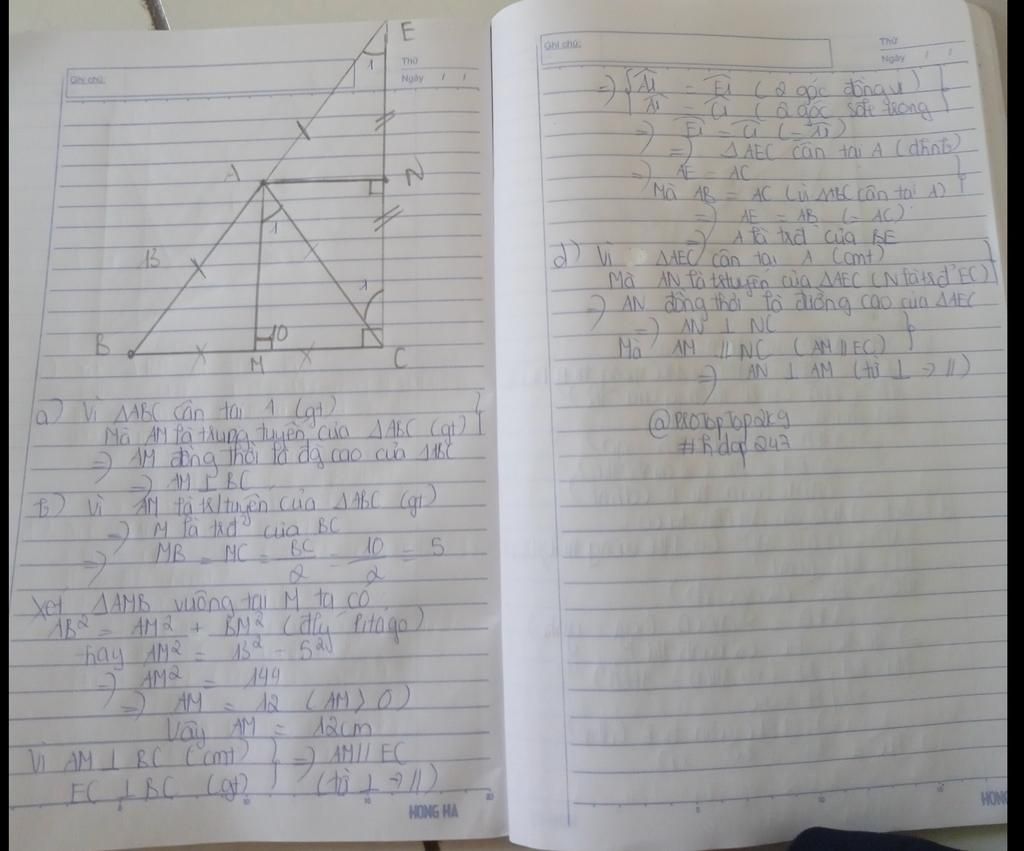 Ghi chú:
Thứ
Ngày / /
E
1
A
N
1
13
1
10
B
M
C
a) Vì ΔABC cân tại A (gt)
Mà AM là trung tuyến của ΔABC (gt)
=> AM đồng thời là đg cao của ΔABC
=> AM ⊥ BC
b) Vì AM là tr/tuyến của ΔABC (gt)
=> M là trđ của BC
=> MB = MC = BC/2 = 10/2 = 5
Xét ΔAMB vuông tại M ta có
AB² = AM² + BM² (đly Pitago)
hay AM² = 13² - 5²
=> AM² = 144
=> AM = 12 (AM > 0)
Vậy AM = 12cm
Vì AM ⊥ BC (cmt) } => AM // EC
EC ⊥ BC (gt) } (từ ⊥ -> //)
HONG HA
Ghi chú:
Thứ
Ngày / /
=> { A1 = E1 (2 góc đồng vị
A1 = C1 (2 góc sole trong
=> E1 = C1 (= A1)
=> ΔAEC cân tại A (đhnb)
=> AE = AC
Mà AB = AC (vì ΔABC cân tại A) }
=> AE = AB (= AC)
=> A là trđ của BE
d) Vì ΔAEC cân tại A (cmt)
Mà AN là tr/tuyến của ΔAEC (N là trđ EC) }
=> AN đồng thời là đường cao của ΔAEC
=> AN ⊥ NC
Mà AM // NC (AM // EC) }
=> AN ⊥ AM (từ ⊥ -> //)
@PROTopTop2k9
#hdap247
HONG